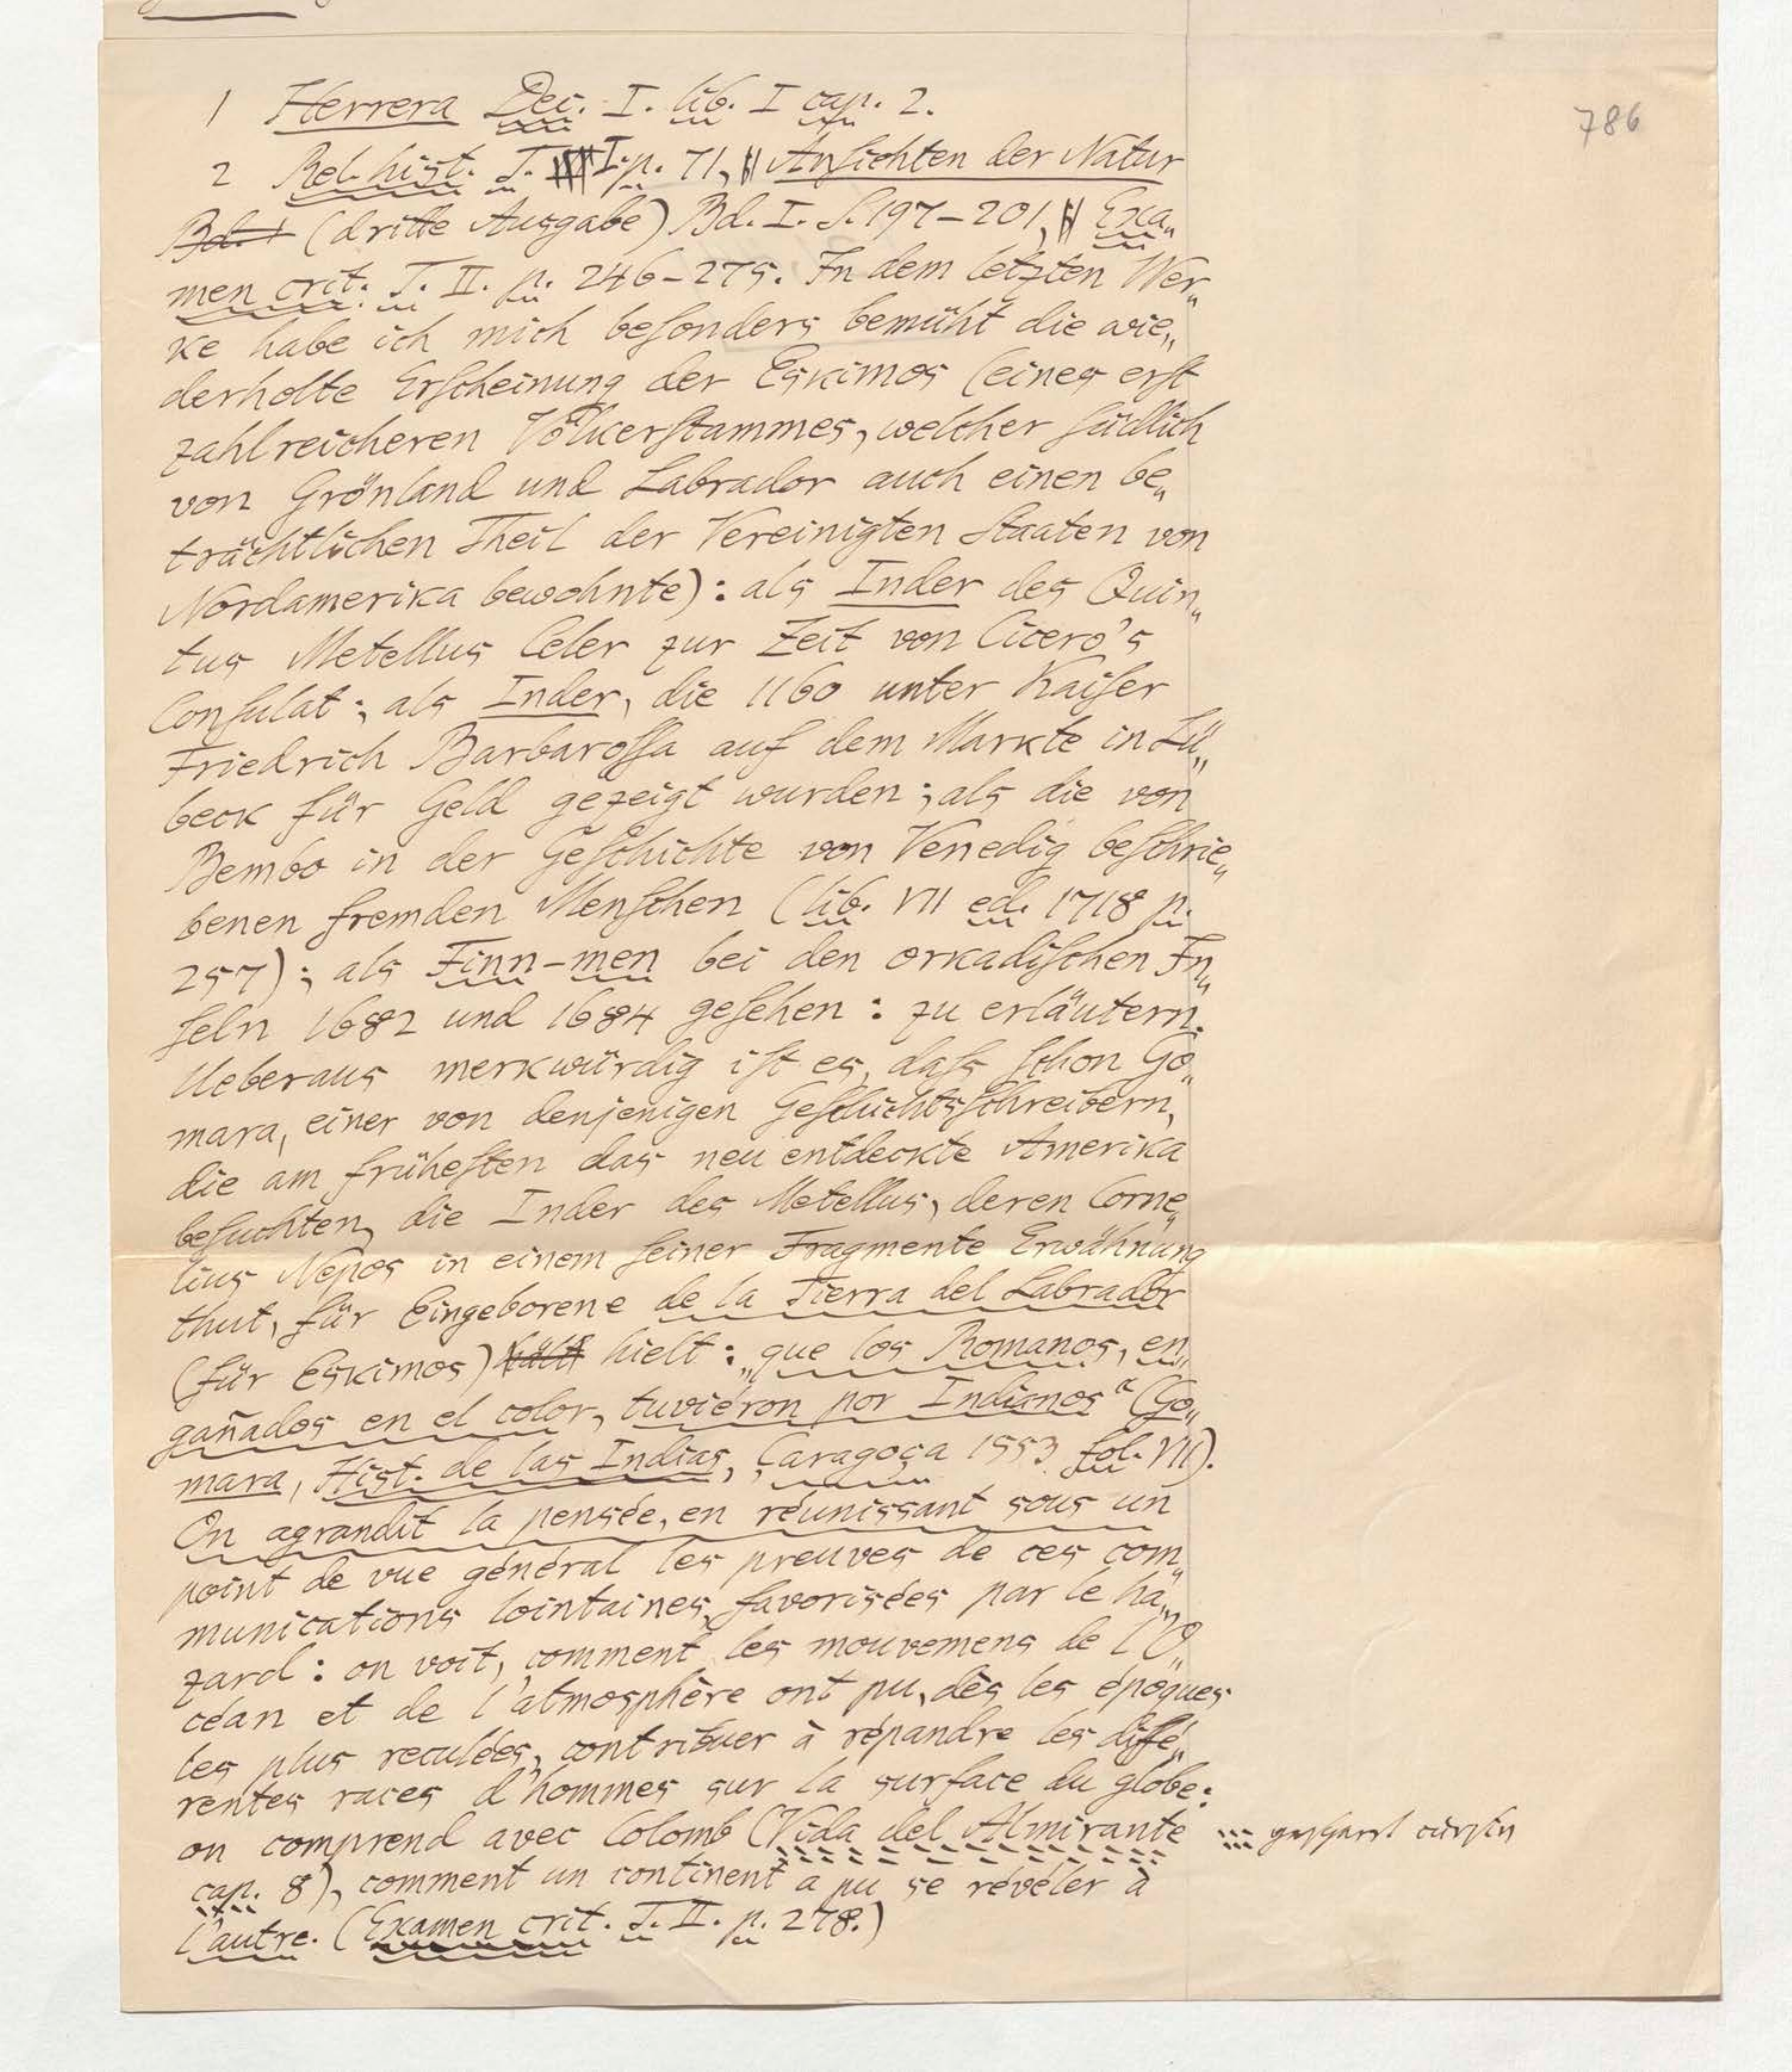 786
1 Herrera Dec. I. lib. I cap. 2.
2 Rel. hist. T. I. p. 71, Ansichten der Natur
Bd. I (dritte Ausgabe) Bd. I. S. 197–201, Exa„
men crit. T. II. p. 246–275. In dem letzten Wer„
ke habe ich mich besonders bemüht die wie„
derholte Erscheinung der Eskimos (eines erst
zahlreicheren Völkerstammes, welcher südlich
von Grönland und Labrador auch einen be„
trächtlichen Theil der Vereinigten Staaten von
Nordamerika bewohnte): als Inder des Quin„
tus Metellus Celer zur Zeit von Cicero's
Consulat; als Inder, die 1160 unter Kaiser
Friedrich Barbarossa auf dem Markte in Lü„
beck für Geld gezeigt wurden; als die von
Bembo in der Geschichte von Venedig beschrie„
benen fremden Menschen (lib. VII ed. 1718 p.
257); als Finn-men bei den orkadischen In„
seln 1682 und 1684 gesehen: zu erläutern.
Ueberaus merkwürdig ist es, dass schon Go„
mara, einer von denjenigen Geschichtsschreibern,
die am frühesten das neu entdeckte Amerika
besuchten, die Inder des Metellus, deren Corne„
lius Nepos in einem seiner Fragmente Erwähnung
thut, für Eingeborene de la Tierra del Labrador
(für Eskimos) hält hielt: „que los Romanos, en„
gañados en el color, tuviéron por Indianos“ (Go„
mara, Hist. de las Indias, Çaragoça 1553 fol. VII).
On agrandit la pensée, en réunissant sous un
point de vue général les preuves de ces com„
munications lointaines, favorisées par le ha„
zard: on voit, comment les mouvemens de l'O„
céan et de l'atmosphère ont pu, dès les époques
les plus reculées, contribuer à répandre les diffé„
rentes races d'hommes sur la surface du globe:
on comprend avec Colomb (Vida del Almirante
cap. 8), comment un continent a pu se révéler à
l'autre. (Examen crit. T. II. p. 278.)
gesperrt cursiv